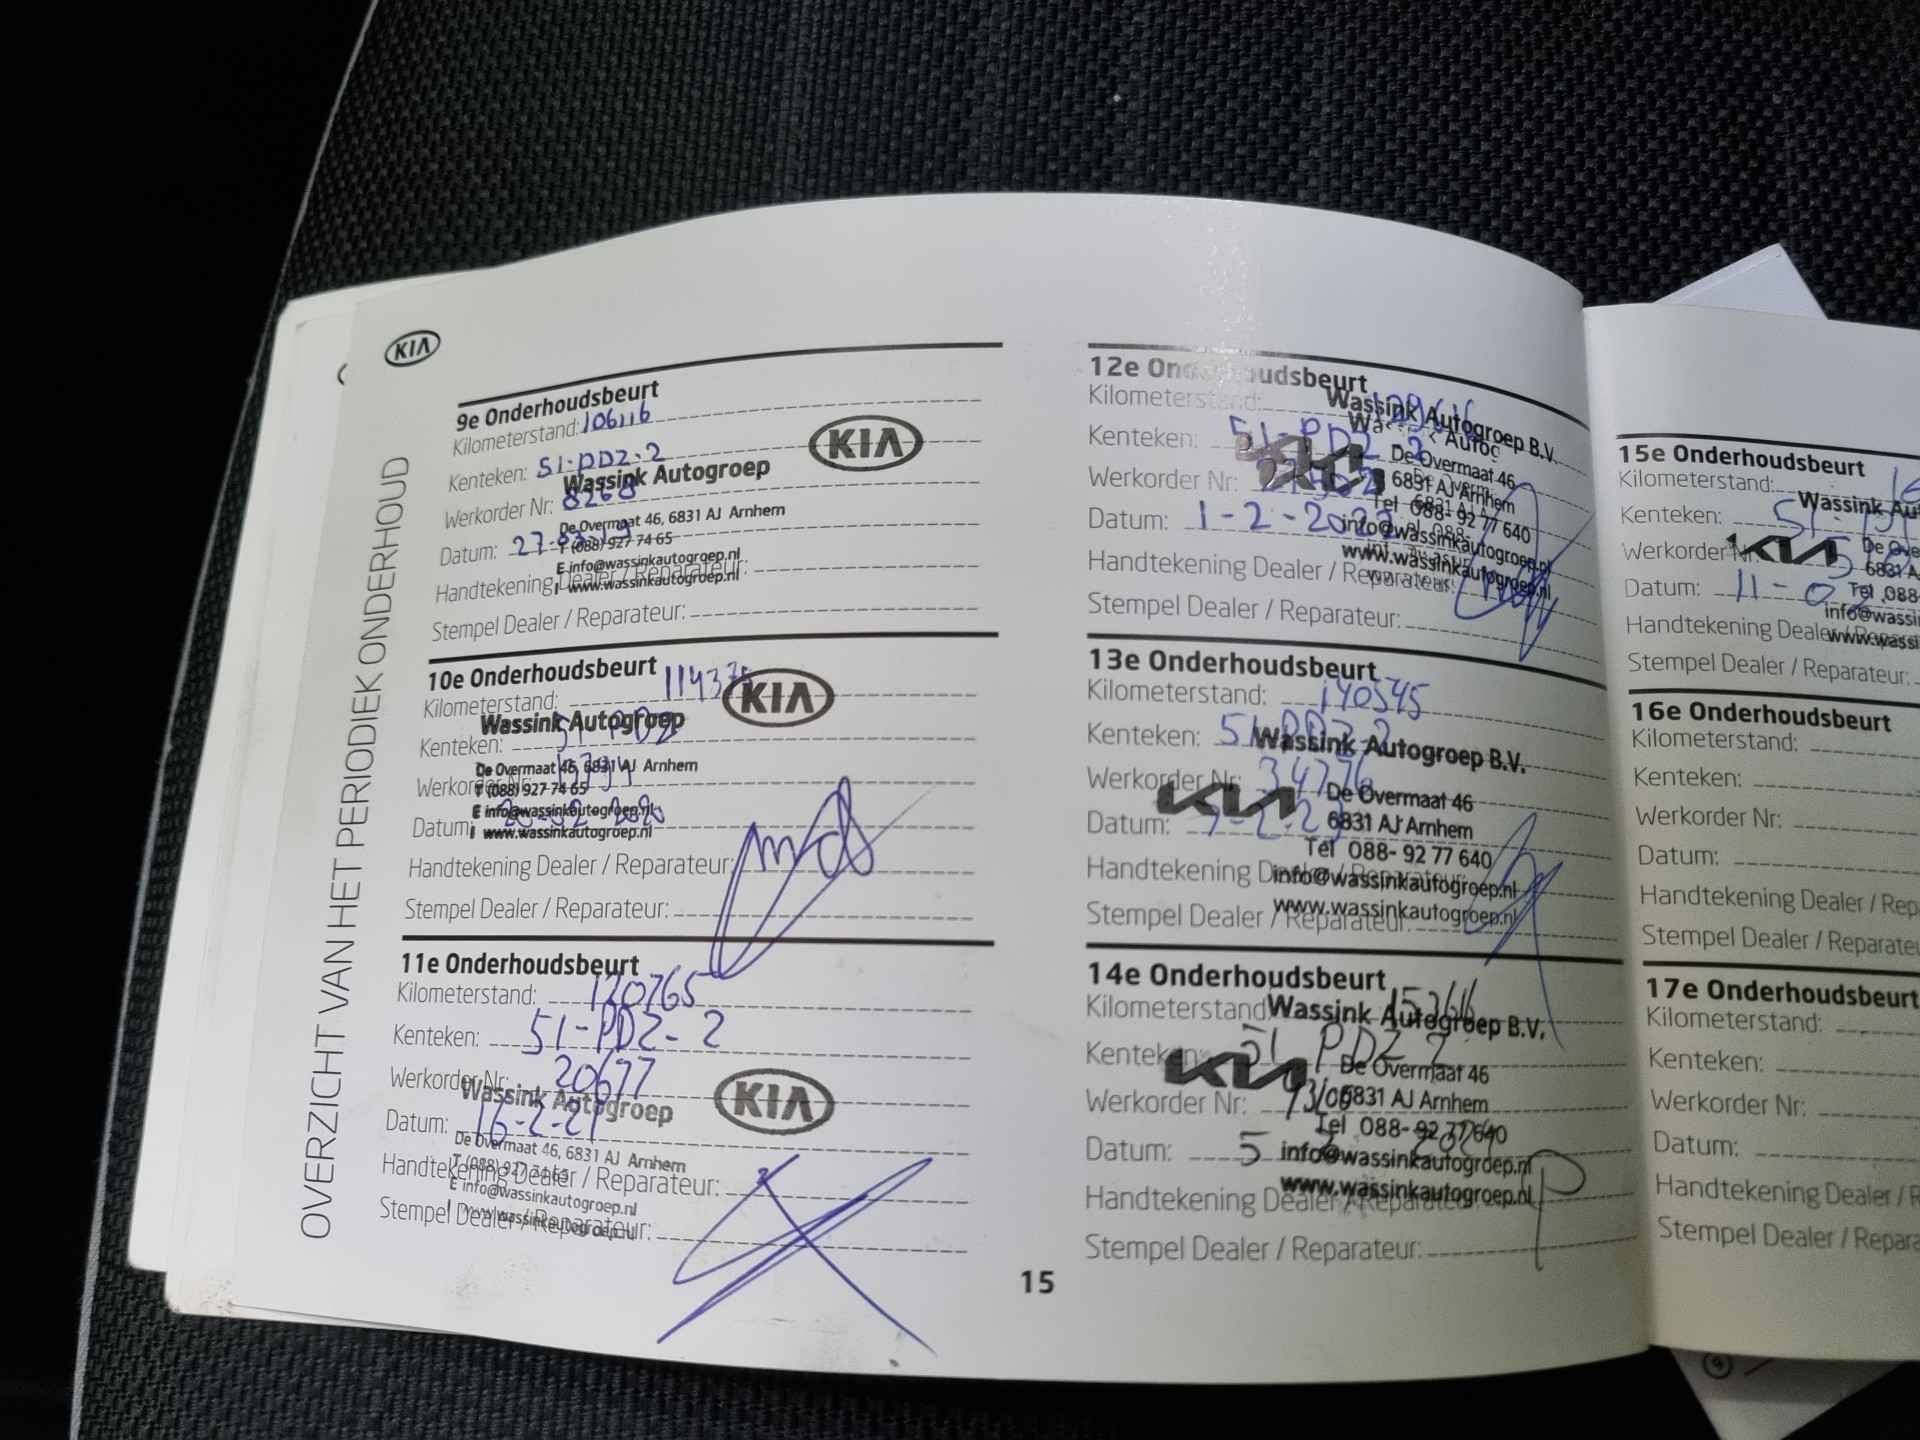 KIA
OVERZICHT VAN HET PERIODIEK ONDERHOUD
9e Onderhoudsbeurt
Kilometerstand: 106116
Kenteken: 51-PDZ-2
Werkorder Nr: 8268
Datum: 27-03-19
Handtekening Dealer / Reparateur:
Stempel Dealer / Reparateur:
KIA
Wassink Autogroep
De Overmaat 46, 6831 AJ Arnhem
T (088) 927 74 65
E info@wassinkautogroep.nl
I www.wassinkautogroep.nl
10e Onderhoudsbeurt
Kilometerstand: 114375
Kenteken: 51 PDZ
Werkorder Nr:
Datum: 20-02-2020
Handtekening Dealer / Reparateur:
Stempel Dealer / Reparateur:
KIA
Wassink Autogroep
De Overmaat 46, 6831 AJ Arnhem
T (088) 927 74 65
E info@wassinkautogroep.nl
I www.wassinkautogroep.nl
11e Onderhoudsbeurt
Kilometerstand: 120765
Kenteken: 51-PDZ-2
Werkorder Nr: 20677
Datum: 16-2-21
Handtekening Dealer / Reparateur:
Stempel Dealer / Reparateur:
KIA
Wassink Autogroep
De Overmaat 46, 6831 AJ Arnhem
T (088) 927 74 65
E info@wassinkautogroep.nl
I www.wassinkautogroep.nl
12e Onderhoudsbeurt
Kilometerstand: 129616
Kenteken: 51-PDZ-2
Werkorder Nr:
Datum: 1-2-2022
Handtekening Dealer / Reparateur:
Stempel Dealer / Reparateur:
KIA
Wassink Autogroep B.V.
De Overmaat 46
6831 AJ Arnhem
Tel 088- 92 77 640
info@wassinkautogroep.nl
www.wassinkautogroep.nl
13e Onderhoudsbeurt
Kilometerstand: 140545
Kenteken: 51-PDZ-2
Werkorder Nr: 34776
Datum: 7-2-23
Handtekening Dealer / Reparateur:
Stempel Dealer / Reparateur:
KIA
Wassink Autogroep B.V.
De Overmaat 46
6831 AJ Arnhem
Tel 088- 92 77 640
info@wassinkautogroep.nl
www.wassinkautogroep.nl
14e Onderhoudsbeurt
Kilometerstand: 153616
Kenteken: 51 PDZ 2
Werkorder Nr:
Datum: 5 2024
Handtekening Dealer / Reparateur:
Stempel Dealer / Reparateur:
KIA
Wassink Autogroep B.V.
De Overmaat 46
6831 AJ Arnhem
Tel 088- 92 77 640
info@wassinkautogroep.nl
www.wassinkautogroep.nl
15
15e Onderhoudsbeurt
Kilometerstand:
Kenteken: 51-
Werkorder Nr:
Datum: 11-02
Handtekening Dealer / Reparat
Stempel Dealer / Reparateur:
KIA
Wassink Aut
De Ove
6831 A
Tel 088-
info@wassin
www.wassi
16e Onderhoudsbeurt
Kilometerstand:
Kenteken:
Werkorder Nr:
Datum:
Handtekening Dealer / Rep
Stempel Dealer / Reparateu
17e Onderhoudsbeurt
Kilometerstand:
Kenteken:
Werkorder Nr:
Datum:
Handtekening Dealer / R
Stempel Dealer / Repara